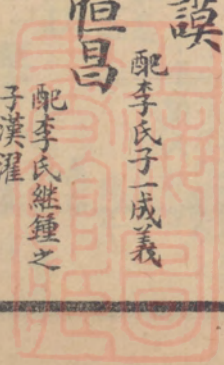 謨
配李氏子一成義
恒昌
配李氏継鍾之
子漢濯